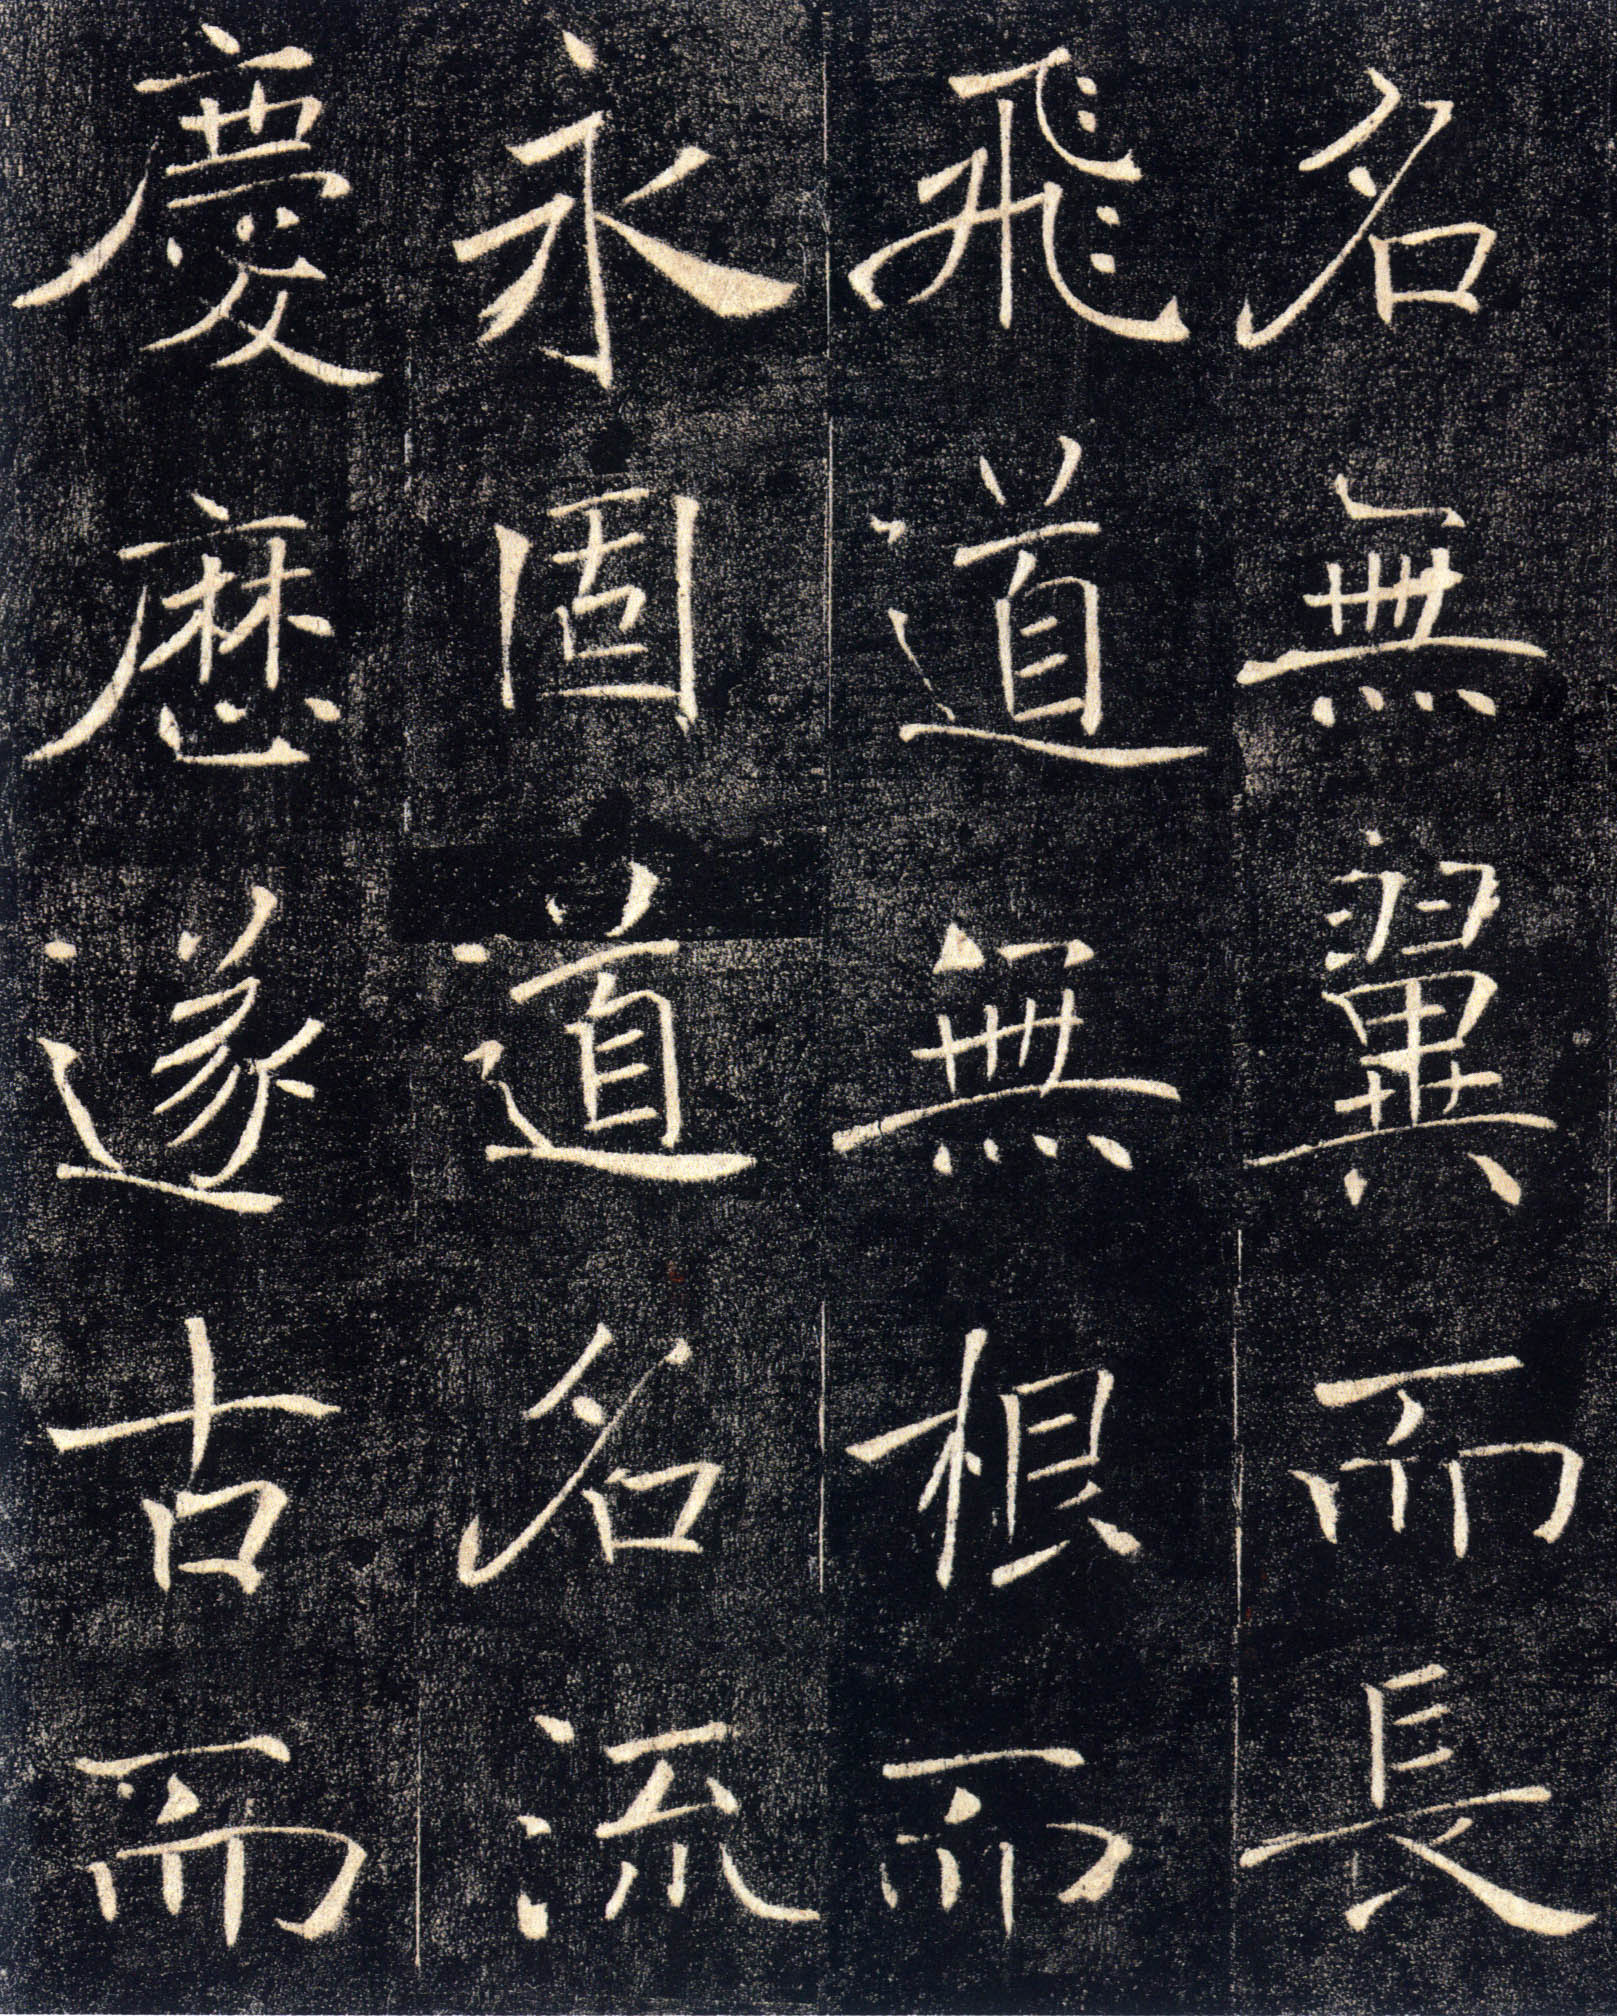 名無翼而長
飛道無根而
永固道名流
慶歷遂古而